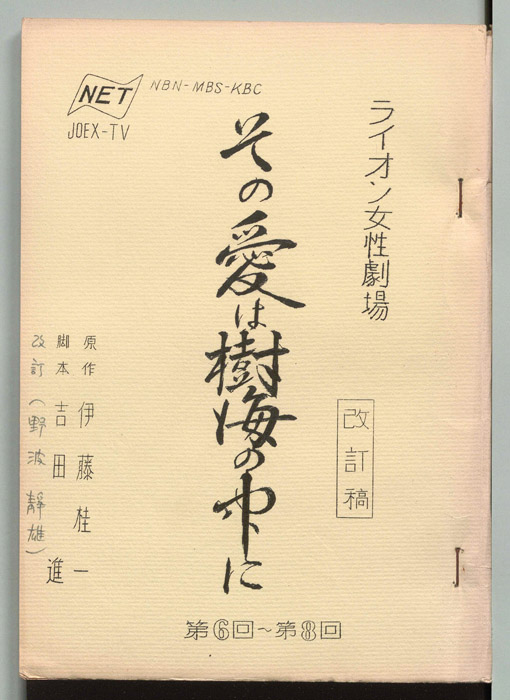 NET
NBN-MBS-KBC
JOEX-TV
ライオン女性劇場
改訂稿
その愛は樹海の中に
原作 伊藤桂一
脚本 吉田進
改訂（野波靜雄）
第6回～第8回